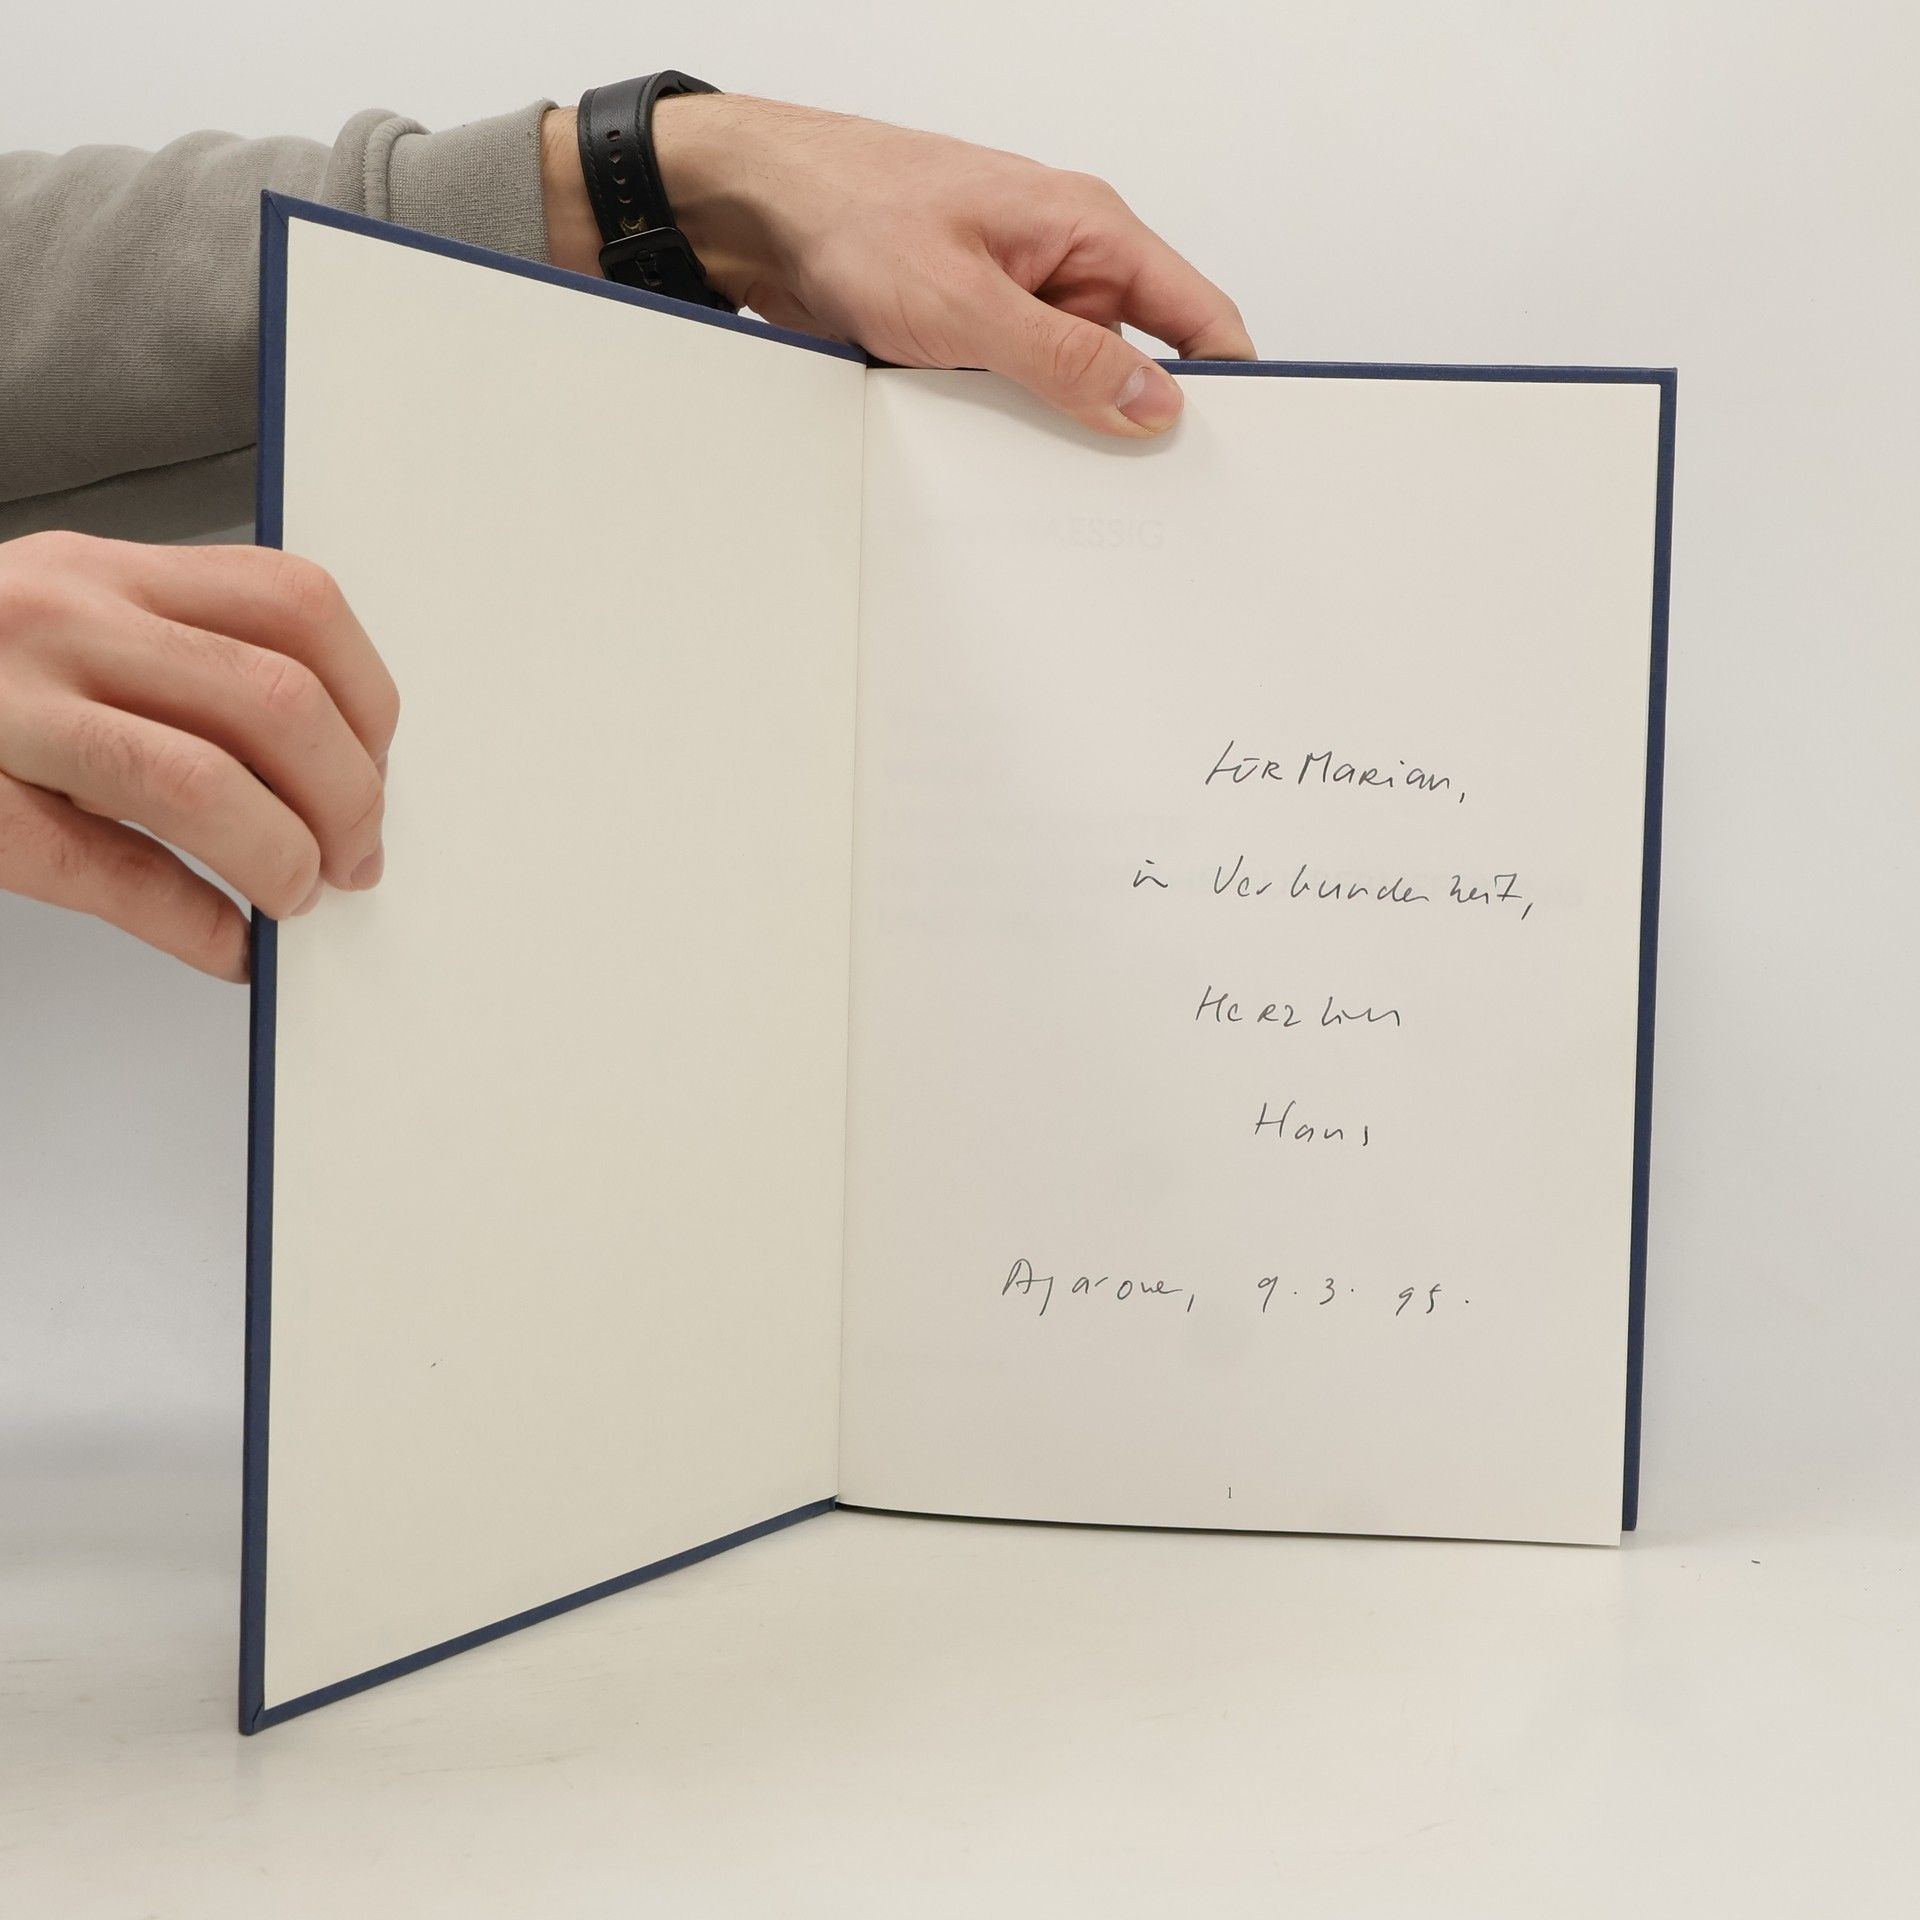 AESSIG
FÜR Marian,
in Verbundenheit,
Herzlich
Hans
Agarone, 9.3.95.
1